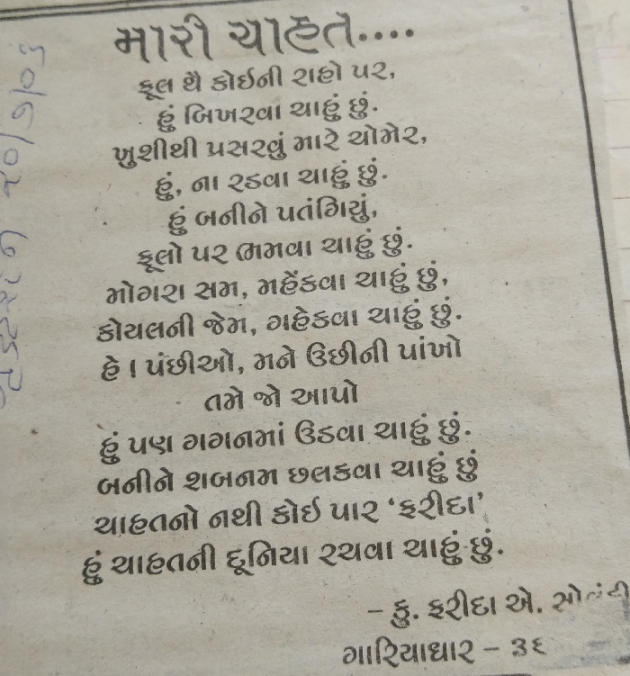 મારી ચાહત....
ફૂલ થૈ કોઈની રાહો પર,
હું બિખરવા ચાહું છું.
ખુશીથી પ્રસરવું મારે ચોમેર,
હું, ના રડવા ચાહું છું.
હું બનીને પતંગિયું,
ફૂલો પર ભમવા ચાહું છું.
મોગરા સમ, મહેંકવા ચાહું છું,
કોયલની જેમ, ગહેકવા ચાહું છું.
હે ! પંછીઓ, મને ઉછીની પાંખો
તમે જો આપો
હું પણ ગગનમાં ઉડવા ચાહું છું.
બનીને શબનમ છલકવા ચાહું છું
ચાહતનો નથી કોઈ પાર ‘ફરીદા’
હું ચાહતની દૂનિયા રચવા ચાહું છું.
– કુ. ફરીદા એ. સોલંકી
ગારિયાધાર – ૩૬